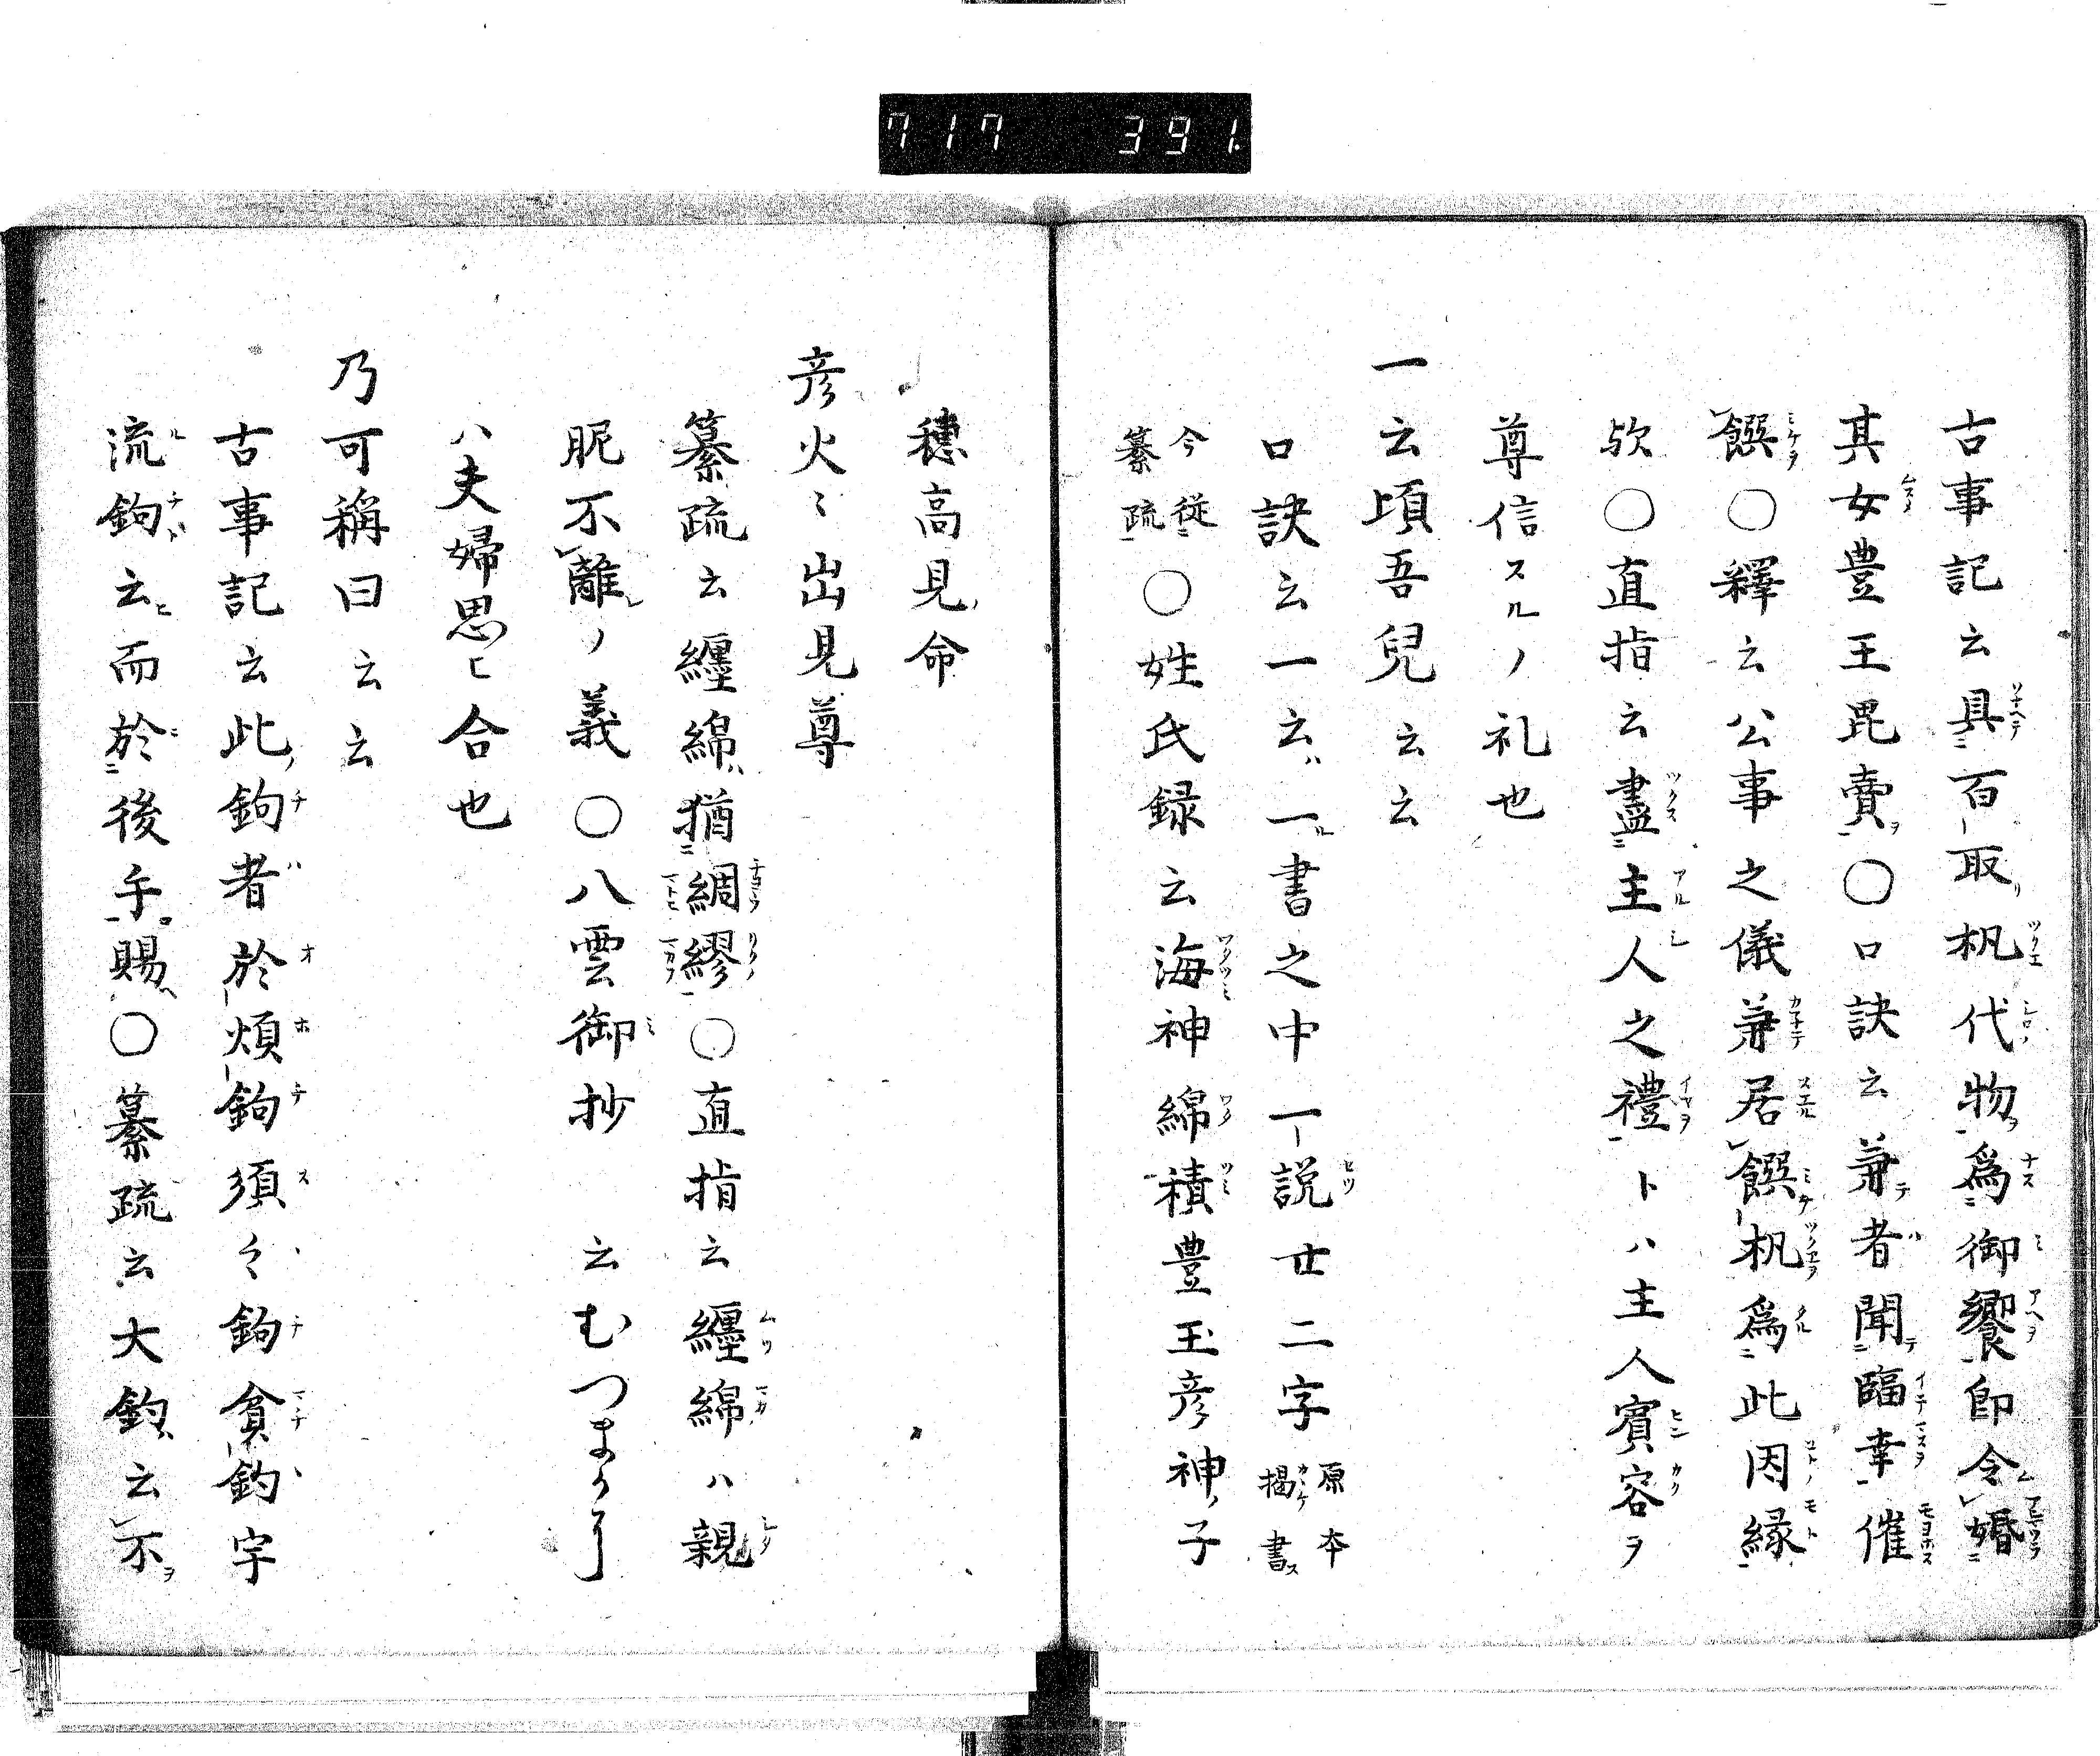 717 391.
古事記云具百取机代物為御饗即令婚
其女豊王毘賣〇口訣云兼者聞臨幸催
饌〇釋云公事之儀兼居饌机為此因縁
欤〇直指云盡主人之禮トハ主人賓容ヲ
尊信スルノ礼也
一云頃吾兒云云
口訣云一云ハ一書之中一説廿二字原本掲書ス
今従纂疏〇姓氏録云海神綿積豊玉彦神ノ子
穂高見ノ命
彦火〻出見尊
纂疏云纏綿ハ猶綢繆〇直指云纏綿ハ親
昵不離ノ義〇八雲御抄云むつまかり
ハ夫婦思ヒ合也
乃可稱曰云云
古事記云此鉤者於煩鉤須〻鉤貧鈎宇
流鉤云而於後手賜〇纂疏云大鈎云不